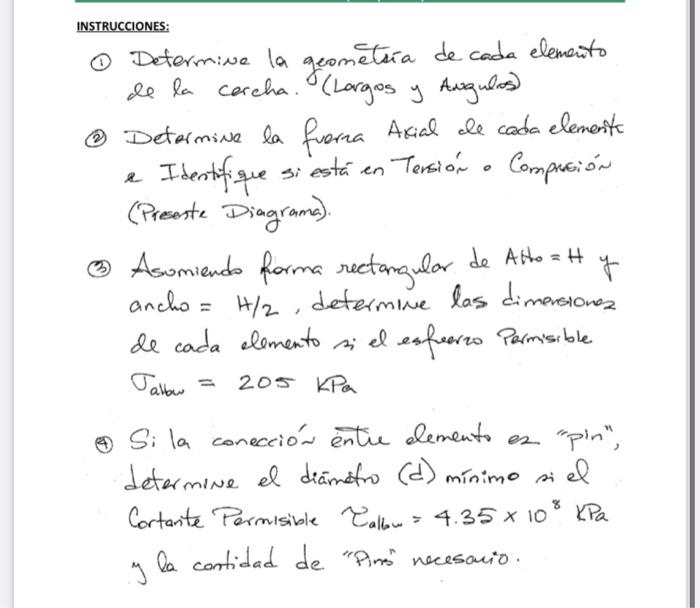 INSTRUCCIONES:
① Determine la geometría de cada elemento
de la cercha. (Largos y Angulos)
② Determine la fuerza Axial de cada elemento
e Identifique si está en Tensión o Compresión
(Presente Diagrama).
③ Asumiendo forma rectangular de Alto = H y
ancho = H/2, determine las dimensiones
de cada elemento si el esfuerzo Permisible
σallow = 205 KPa
④ Si la conección entre elemento es "pin",
determine el diámetro (d) mínimo si el
Cortante Permisible τallow = 4.35 x 10⁸ KPa
y la cantidad de "Pins" necesario.